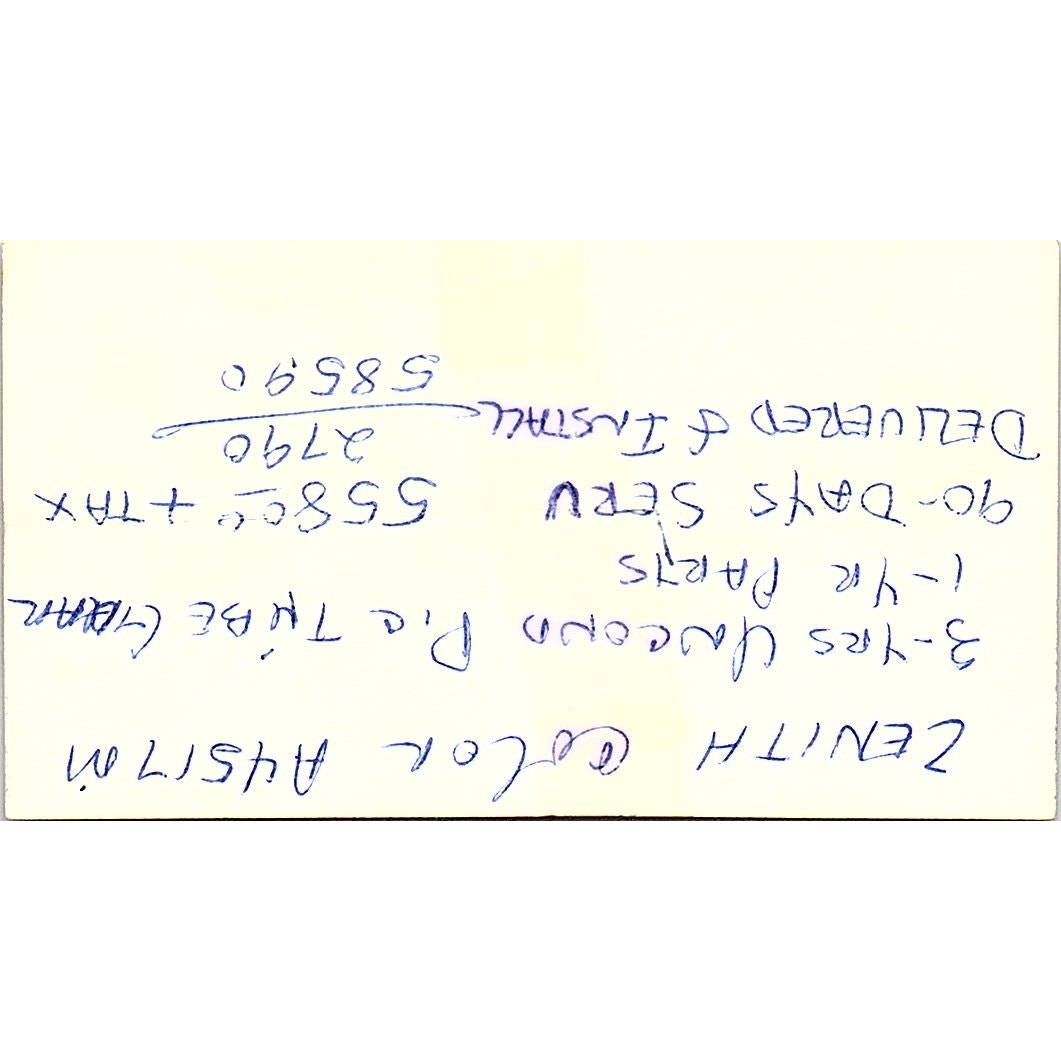 ZENITH COLOR A4517M
3-YRS UNCOND PIC TUBE GUAR
1-YR PARTS
90-DAYS SERV 55800 + TAX
2790
DELIVERED & INSTALL
58590